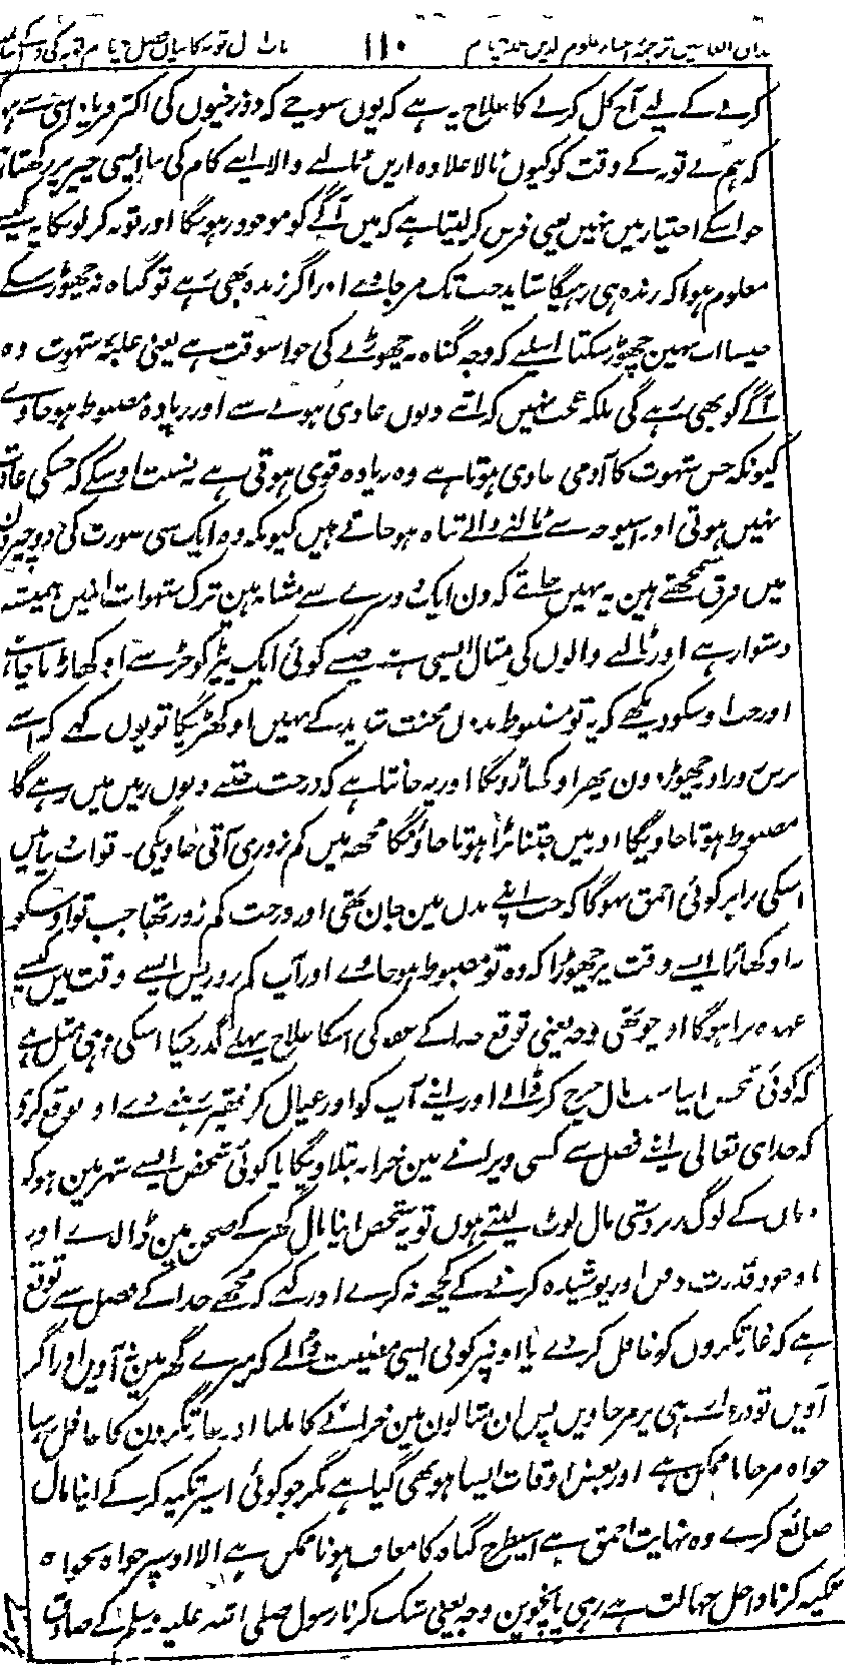 مذاق العارفین ترجمہ احیاء علوم الدین جلد چہارم ۱۱۰ باب اول توبہ کا بیان فصل چہارم توبہ کی
کرنے کے لیے آج کل کرنے کا علاج یہ ہے کہ یوں سوچے کہ دوزخیوں کی اکثر فریاد اسی سے
کہ ہم نے توبہ کے وقت کو کیوں ٹالا علاوہ ازیں ٹالنے والا ایسے کام کی بنا ایسی چیز پر رکھتا
جو اسکے اختیار میں نہیں یعنی فرض کر لیتا ہے کہ میں آگے کو موجود رہونگا اور توبہ کر لونگا یہ کیسے
معلوم ہوا کہ زندہ ہی رہیگا شاید جب تک مر جاوے اور اگر زندہ بھی رہے تو گناہ نہ چھوڑ سکے
جیسا اب نہیں چھوڑ سکتا اسلیے کہ وجہ گناہ نہ چھوڑنے کی جو اسوقت ہے یعنی غلبۂ شہوت وہ
آگے کو بھی رہے گی بلکہ عجب نہیں کہ اتنے دنوں عادی ہونے سے اور زیادہ مضبوط ہو جاوے
کیونکہ جس شہوت کا آدمی عادی ہوتا ہے وہ زیادہ قوی ہوتی ہے بنسبت اوسکے کہ جسکی عادت
نہیں ہوتی اور اسیوجہ سے ٹالنے والے تباہ ہو جاتے ہیں کیونکہ وہ ایک سی صورت کی دو چیزوں
میں فرق سمجھتے ہین یہ نہیں جانتے کہ دن ایک دوسرے سے مشابہ ہین ترک شہوات انمیں ہمیشہ
دشوار ہے اور ٹالنے والوں کی مثال ایسی ہے جیسے کوئی ایک پیڑ کو جڑ سے اوکھاڑنا چاہے
اور جب اوسکو دیکھے کہ یہ تو مضبوط ہے بدون محنت شدید کے نہیں اوکھڑیگا تو یوں کہے کہ اسے
برس روز اور چھوڑ دون پھر اوکھاڑونگا اور یہ جانتا ہے کہ درخت جتنے دنوں زمین میں رہے گا
مضبوط ہوتا جاویگا اور میں جتنا بڑا ہوتا جاؤنگا مجھ میں کم زوری آتی جاویگی۔ تو اب دنیا میں
اسکی برابر کوئی احمق نہوگا کہ جب اپنے بدن مین جان تھی اور درخت کم زور تھا جب تو اوسکو
نہ اوکھاڑا ایسے وقت پر چھوڑا کہ وہ تو مضبوط ہو جاوے اور آپ کم زور پس ایسے وقت میں کیسے
عہدہ برا ہوگا اور چوتھی وجہ یعنی توقع خدا کے عفو کی اسکا علاج پہلے گذر چکا اسکی وہی مثل ہے
کہ کوئی شخص اپنا سب مال خرچ کر ڈالے اور اپنے آپ کو اور عیال کو فقیر بنا دے اور توقع کرے
کہ خدای تعالی اپنے فضل سے کسی ویرانے مین خزانہ بتلا ویگا یا کوئی شخص ایسے شہر مین ہو کہ
وہاں کے لوگ زبردستی مال لوٹ لیتے ہوں تو یہ شخص اپنا مال گھر کے صحن مین ڈالدے اور
باوجود قدرت دفن اور پوشیدہ کرنے کے کچھ نہ کرے اور کہے کہ مجھے خدا کے فضل سے توقع
ہے کہ غارتگروں کو غافل کر دے یا اونپر کوئی ایسی مصیبت ڈالے کہ میرے گھر مین نہ آویں اور اگر
آویں تو دروازے ہی پر مر جاویں پس ان مثالون مین خزانے کا ملنا اور غارتگرون کا غافل ہونا
خواہ مر جانا ممکن ہے اور بعض اوقات ایسا ہو بھی گیا ہے مگر جو کوئی اسپر تکیہ کر کے اپنا مال
ضائع کرے وہ نہایت احمق ہے اسیطرح گناہ کا معاف ہونا ممکن ہے الا اوسپر خواہ نخواہ
تکیہ کرنا داخل جہالت ہے رہی پانچوین وجہ یعنی شک کرنا رسول صلی اللہ علیہ وسلم کے صادق